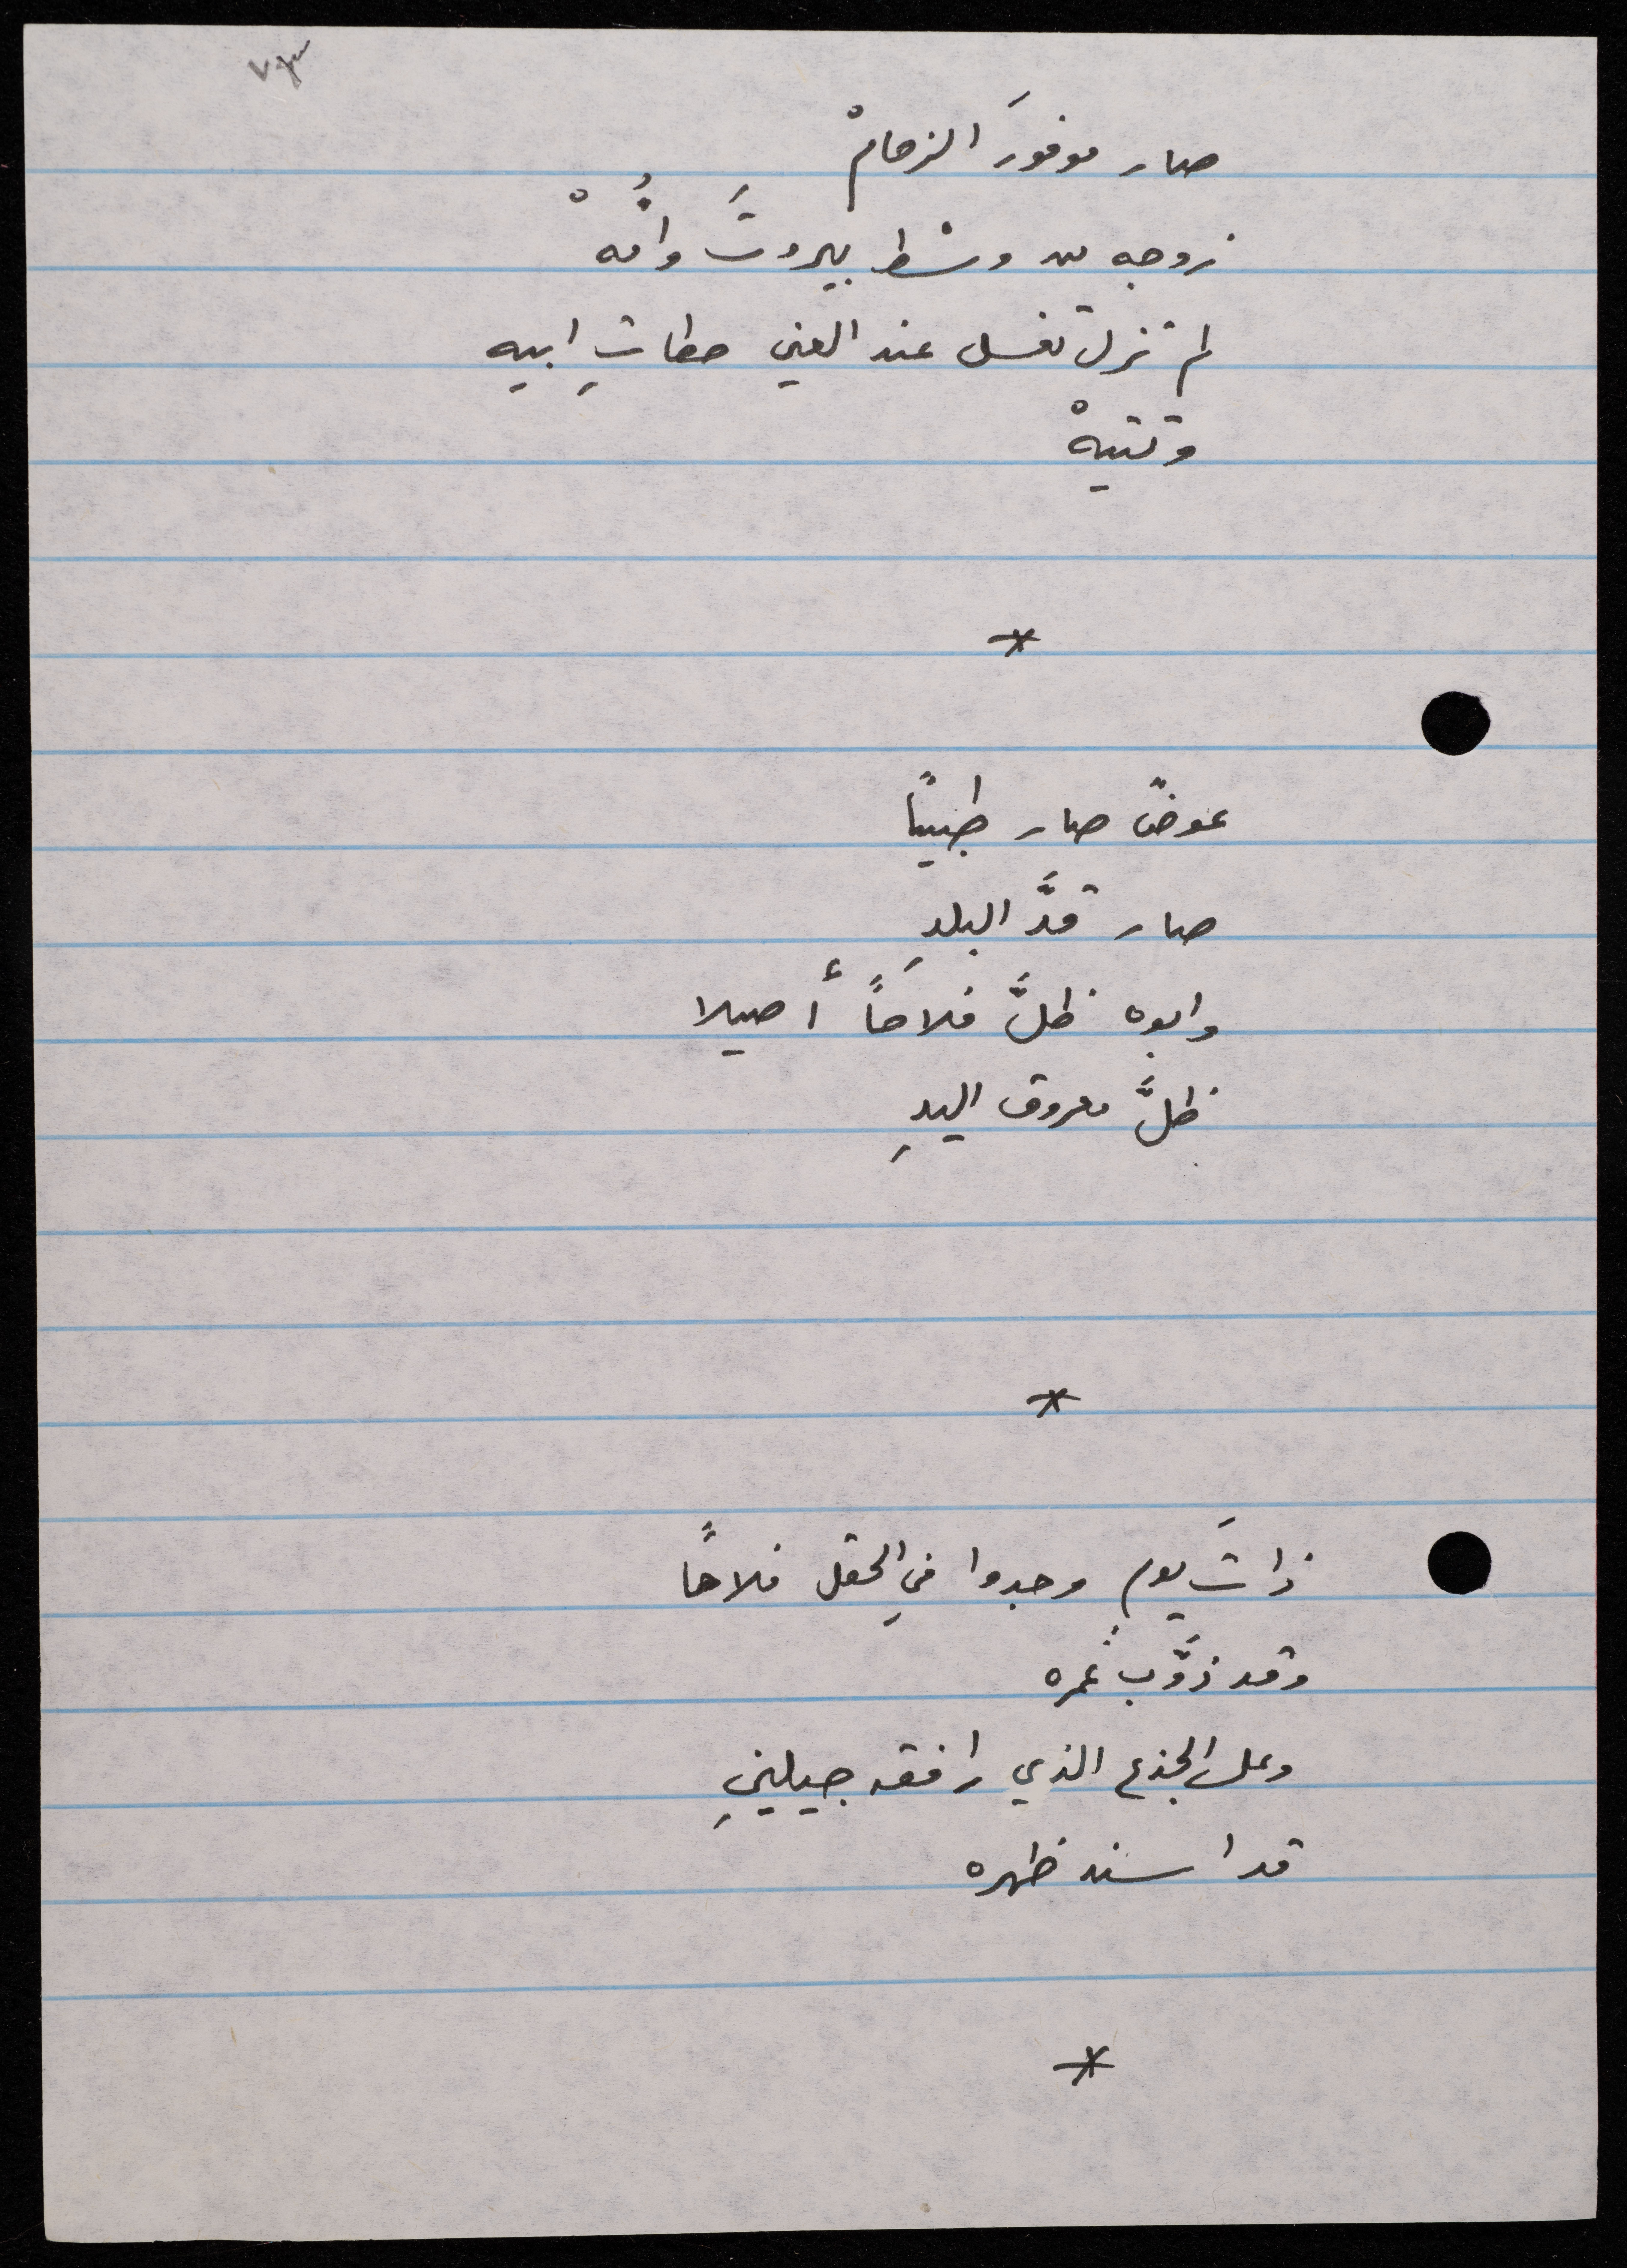 صار موفورَ الزحامْ
زوجه من وسْط بيروتَ وامُّهْ
لم تزل تغسل عند العين حطاتِ ابيه
وتتيهْ
*
عوضٌ صار طبيباً
صار قدَّ البلدِ
وابوه ظلَّ فلاحاً أصيلا
ظلَّ معروق اليدِ
*
ذاتَ يومٍ وجدوا في الحقل فلاحاً
وقد ذوَّب عُمره
وعلى الجذع الذي رافقه جيلينِ
قد اسند ظهره
*